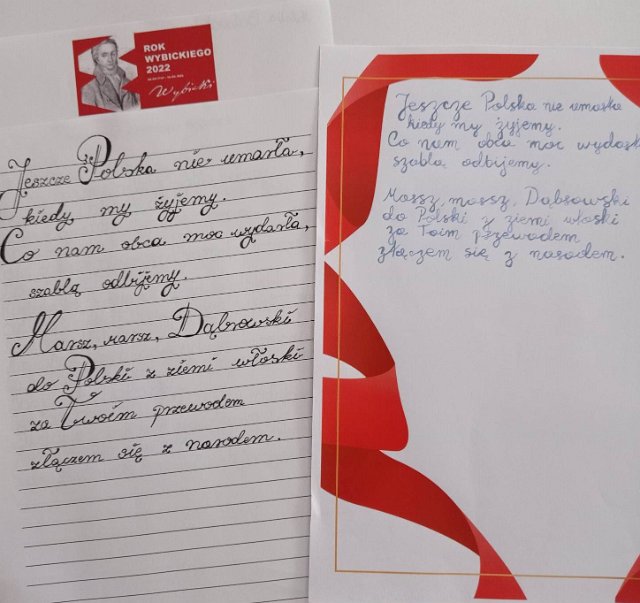 ROK
WYBICKIEGO
2022
Wybicki
Jeszcze Polska nie umarła,
kiedy my żyjemy.
Co nam obca moc wydarła,
szablą odbijemy.
Marsz, marsz, Dąbrowski
do Polski z ziemi włoski
za Twoim przewodem
złączem się z narodem.
Jeszcze Polska nie umarła
kiedy my żyjemy.
Co nam obca moc
szablą odbijemy.
Marsz, marsz, Dąbrowski
do Polski z ziemi włoski
za Twoim przewodem
złączem się z narodem.